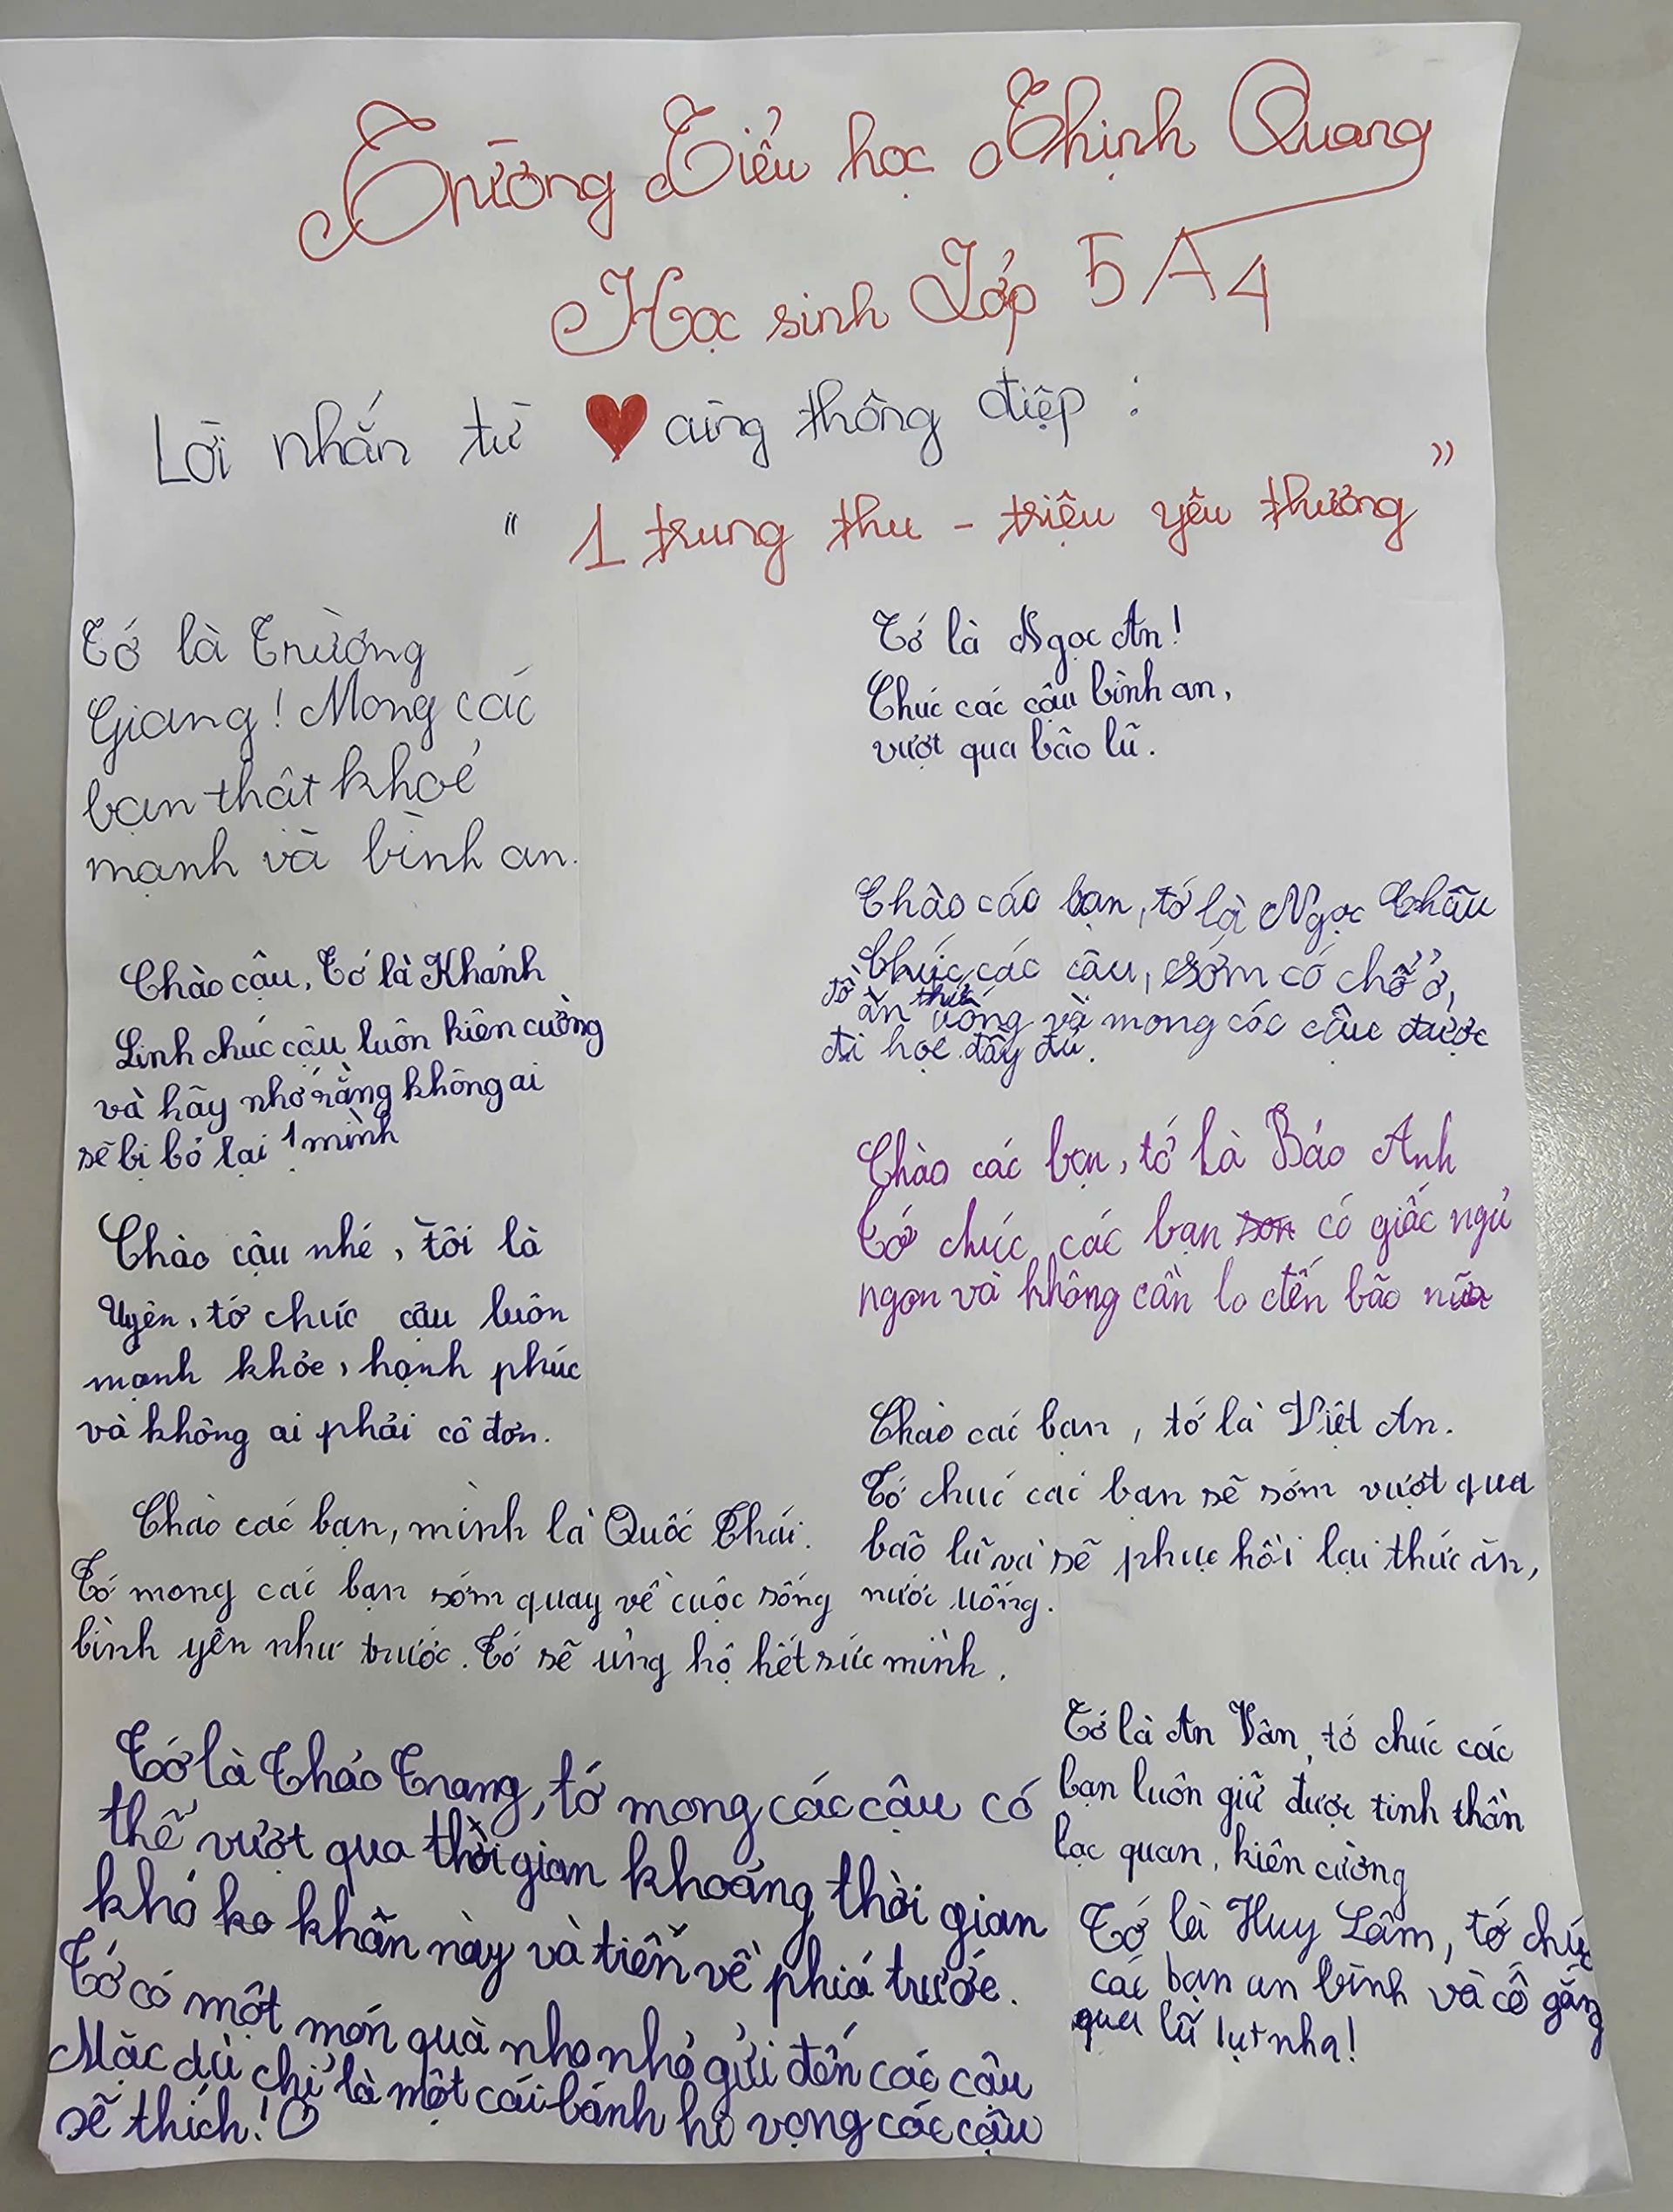 Trường Tiểu học Thịnh Quang
Học sinh Lớp 5A4
Lời nhắn từ ♥ cùng thông điệp :
" 1 trung thu - triệu yêu thương "
Tớ là Trường
Giang! Mong các
bạn thật khoẻ
mạnh và bình an.
Chào cậu, Tớ là Khánh
Linh chúc cậu luôn kiên cường
và hãy nhớ rằng không ai
sẽ bị bỏ lại 1 mình
Chào cậu nhé, tôi là
Uyên, tớ chúc cậu luôn
mạnh khỏe, hạnh phúc
và không ai phải cô đơn.
Chào các bạn, mình là Quốc Thái.
Tớ mong các bạn sớm quay về cuộc sống
bình yên như trước. Tớ sẽ ủng hộ hết sức mình.
Tớ là Thảo Trang, tớ mong các cậu có
thể vượt qua thời gian khoảng thời gian
khó ko khăn này và tiến về phía trước.
Tớ có một món quà nho nhỏ gửi đến các cậu
Mặc dù chỉ là một cái bánh hi vọng các cậu
sẽ thích! ♡
Tớ là Ngọc An!
Chúc các cậu bình an,
vượt qua bão lũ.
Chào các bạn, tớ là Ngọc Châu
Chúc các cậu, sớm có chỗ ở,
đồ ăn thức uống và mong các cậu được
đi học đầy đủ.
Chào các bạn, tớ là Bảo Anh
Tớ chúc các bạn có giấc ngủ
ngon và không cần lo đến bão nữa
Chào các bạn, tớ là Việt An.
Tớ chúc các bạn sẽ sớm vượt qua
bão lũ và sẽ phục hồi lại thức ăn,
nước uống.
Tớ là An Vân, tớ chúc các
bạn luôn giữ được tinh thần
lạc quan, kiên cường
Tớ là Huy Lâm, tớ chúc
các bạn an bình và cố gắng
qua lũ lụt nha!